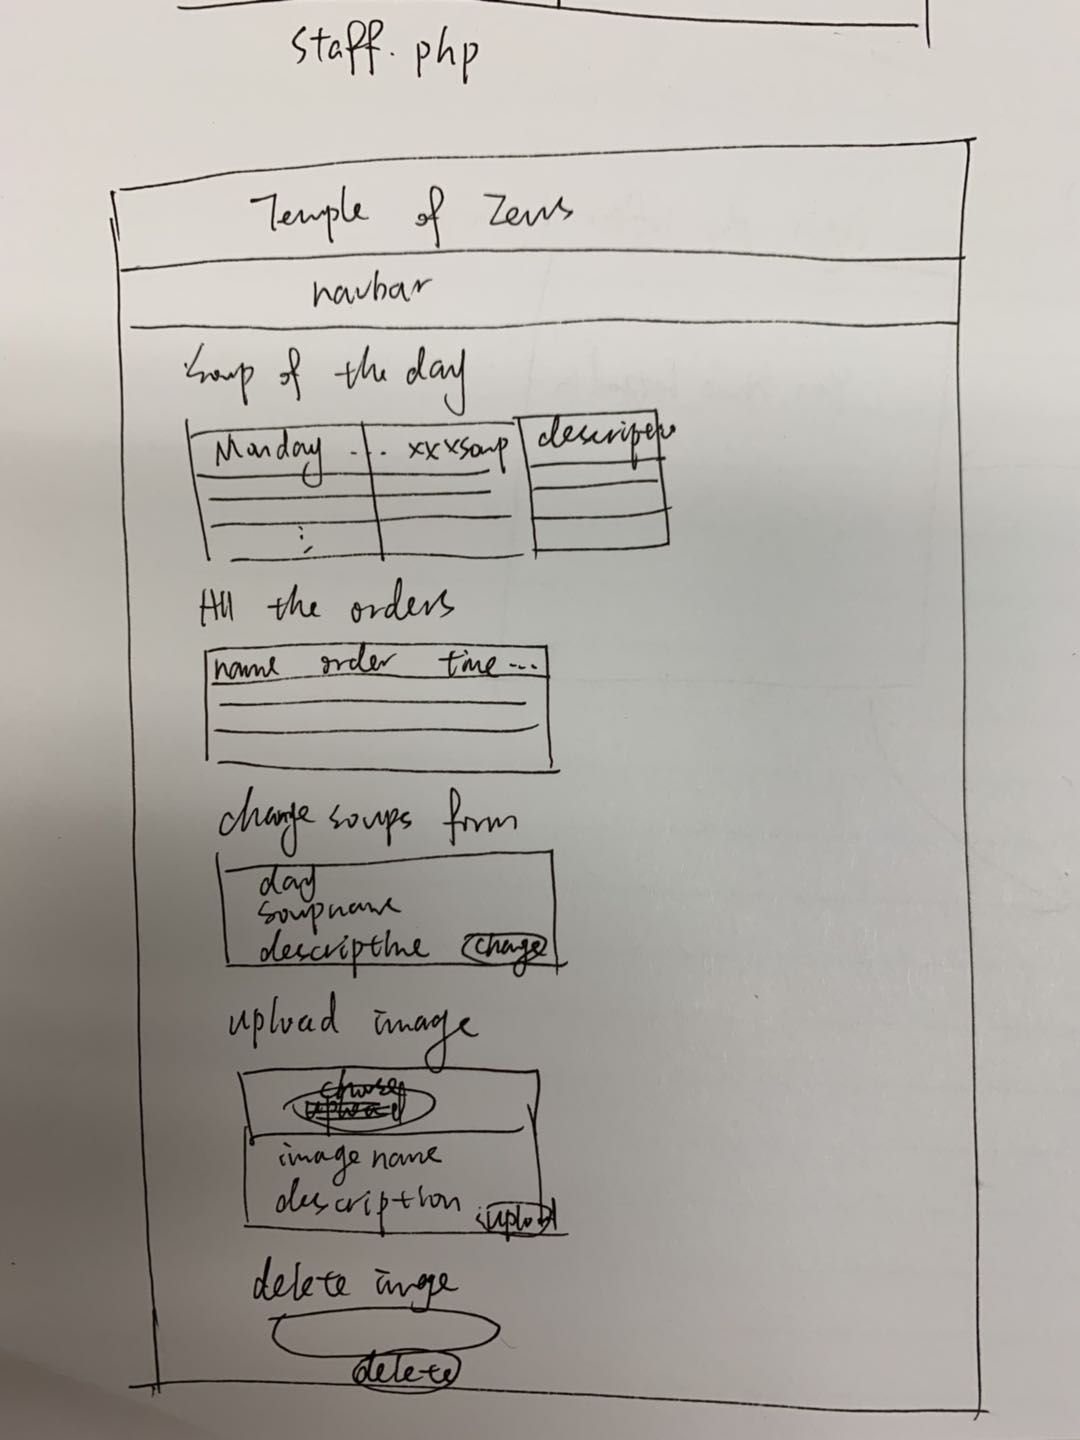 staff.php
Temple of Zeus
navbar
Soup of the day
Monday ... xxxsoup description
All the orders
name order time ...
change soups form
day
soupname
description change
upload image
choose
upload
image name
description upload
delete image
delete